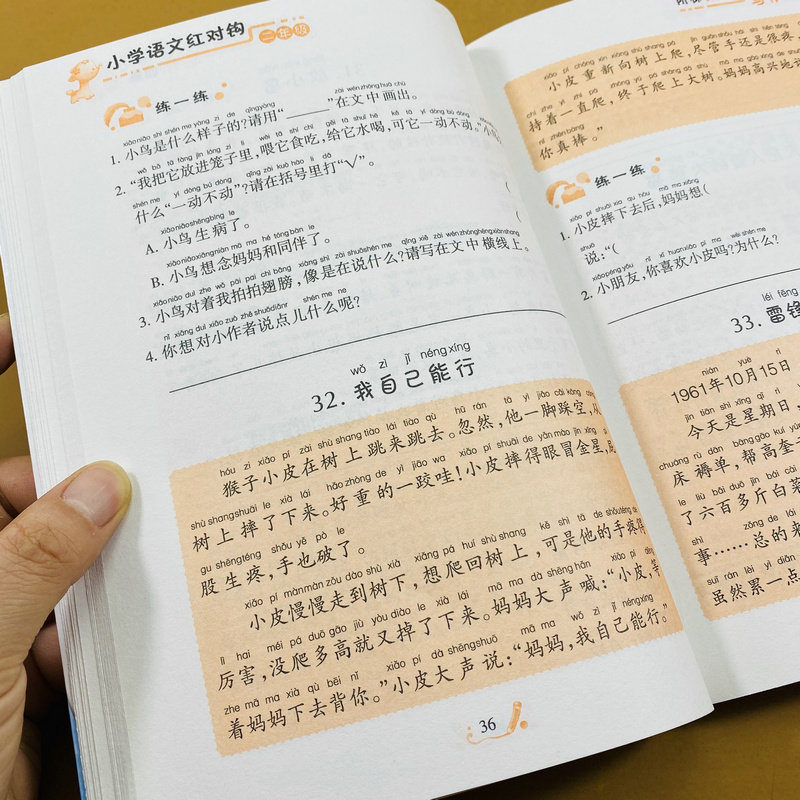 小学语文红对钩 二年级
练一练
xiǎoniǎo shì shén me yàng zi de qǐngyòng zài wénzhōnghuà chū
1. 小鸟是什么样子的?请用“______”在文中画出。
2. “我把它放进笼子里,喂它食吃,给它水喝,可它一动不动。”小鸟
shén me yí dòng bú dòng qǐng zài kuò hào lǐ dǎ
什么“一动不动”?请在括号里打“√”。
xiǎoniǎoshēngbìng le
A. 小鸟生病了。 (
xiǎoniǎoxiǎngniàn mā ma hé tóng bàn le
B. 小鸟想念妈妈和同伴了。 (
3. 小鸟对着我拍拍翅膀,像是在说什么?请写在文中横线上。
nǐ xiǎng duì xiǎo zuò zhě shuōdiǎnr shén me ne
4. 你想对小作者说点儿什么呢?
wǒ zì jǐ néng xíng
32. 我自己能行
hóu zi xiǎo pí zài shù shang tiào lái tiào qù hū rán tā yì jiǎo cǎi kōng
猴子小皮在树上跳来跳去。忽然,他一脚踩空,从
shù shangshuāi le xià lái hǎozhòng de yì jiāo wa xiǎo pí shuāi de yǎn mào jīn xīng
树上摔了下来。好重的一跤哇!小皮摔得眼冒金星,屁
gu shēngténg shǒu yě pò le
股生疼,手也破了。
xiǎo pí mànmàn zǒu dào shù xià xiǎng pá huí shù shang kě shì tā de shǒuténg de
小皮慢慢走到树下,想爬回树上,可是他的手疼得
lì hai méi pá duō gāo jiù yòu diào le xià lái mā ma dà shēng hǎn xiǎo pí
厉害,没爬多高就又掉了下来。妈妈大声喊:“小皮,等
zhe mā ma xià qù bēi nǐ xiǎo pí dà shēngshuō mā ma wǒ zì jǐ néngxíng
着妈妈下去背你。”小皮大声说:“妈妈,我自己能行。”
36
xiǎo pí chóng xīn xiàng shù shang pá jǐn guǎn shǒu hái shi hěn téng
小皮重新向树上爬,尽管手还是很疼
持着一直爬,终于爬上大树。妈妈高兴地说
nǐ zhēn bàng
你真棒。”
练一练
xiǎo pí shuāi xia qu hòu mā ma xiǎng
1. 小皮摔下去后,妈妈想(
shuō
说:“(
xiǎopéng yǒu nǐ xǐ huan xiǎo pí ma wèi shén me
2. 小朋友,你喜欢小皮吗?为什么?
léi fēng
33. 雷锋
nián yuè rì
1961年10月15日
jīn tiān shì xīng qī rì
今天是星期日,
床褥单,帮高奎
le liù bǎi duō jīn bái cài
了六百多斤白菜
shì zǒng de lái
事……总的来
suī rán lèi yì diǎn
虽然累一点